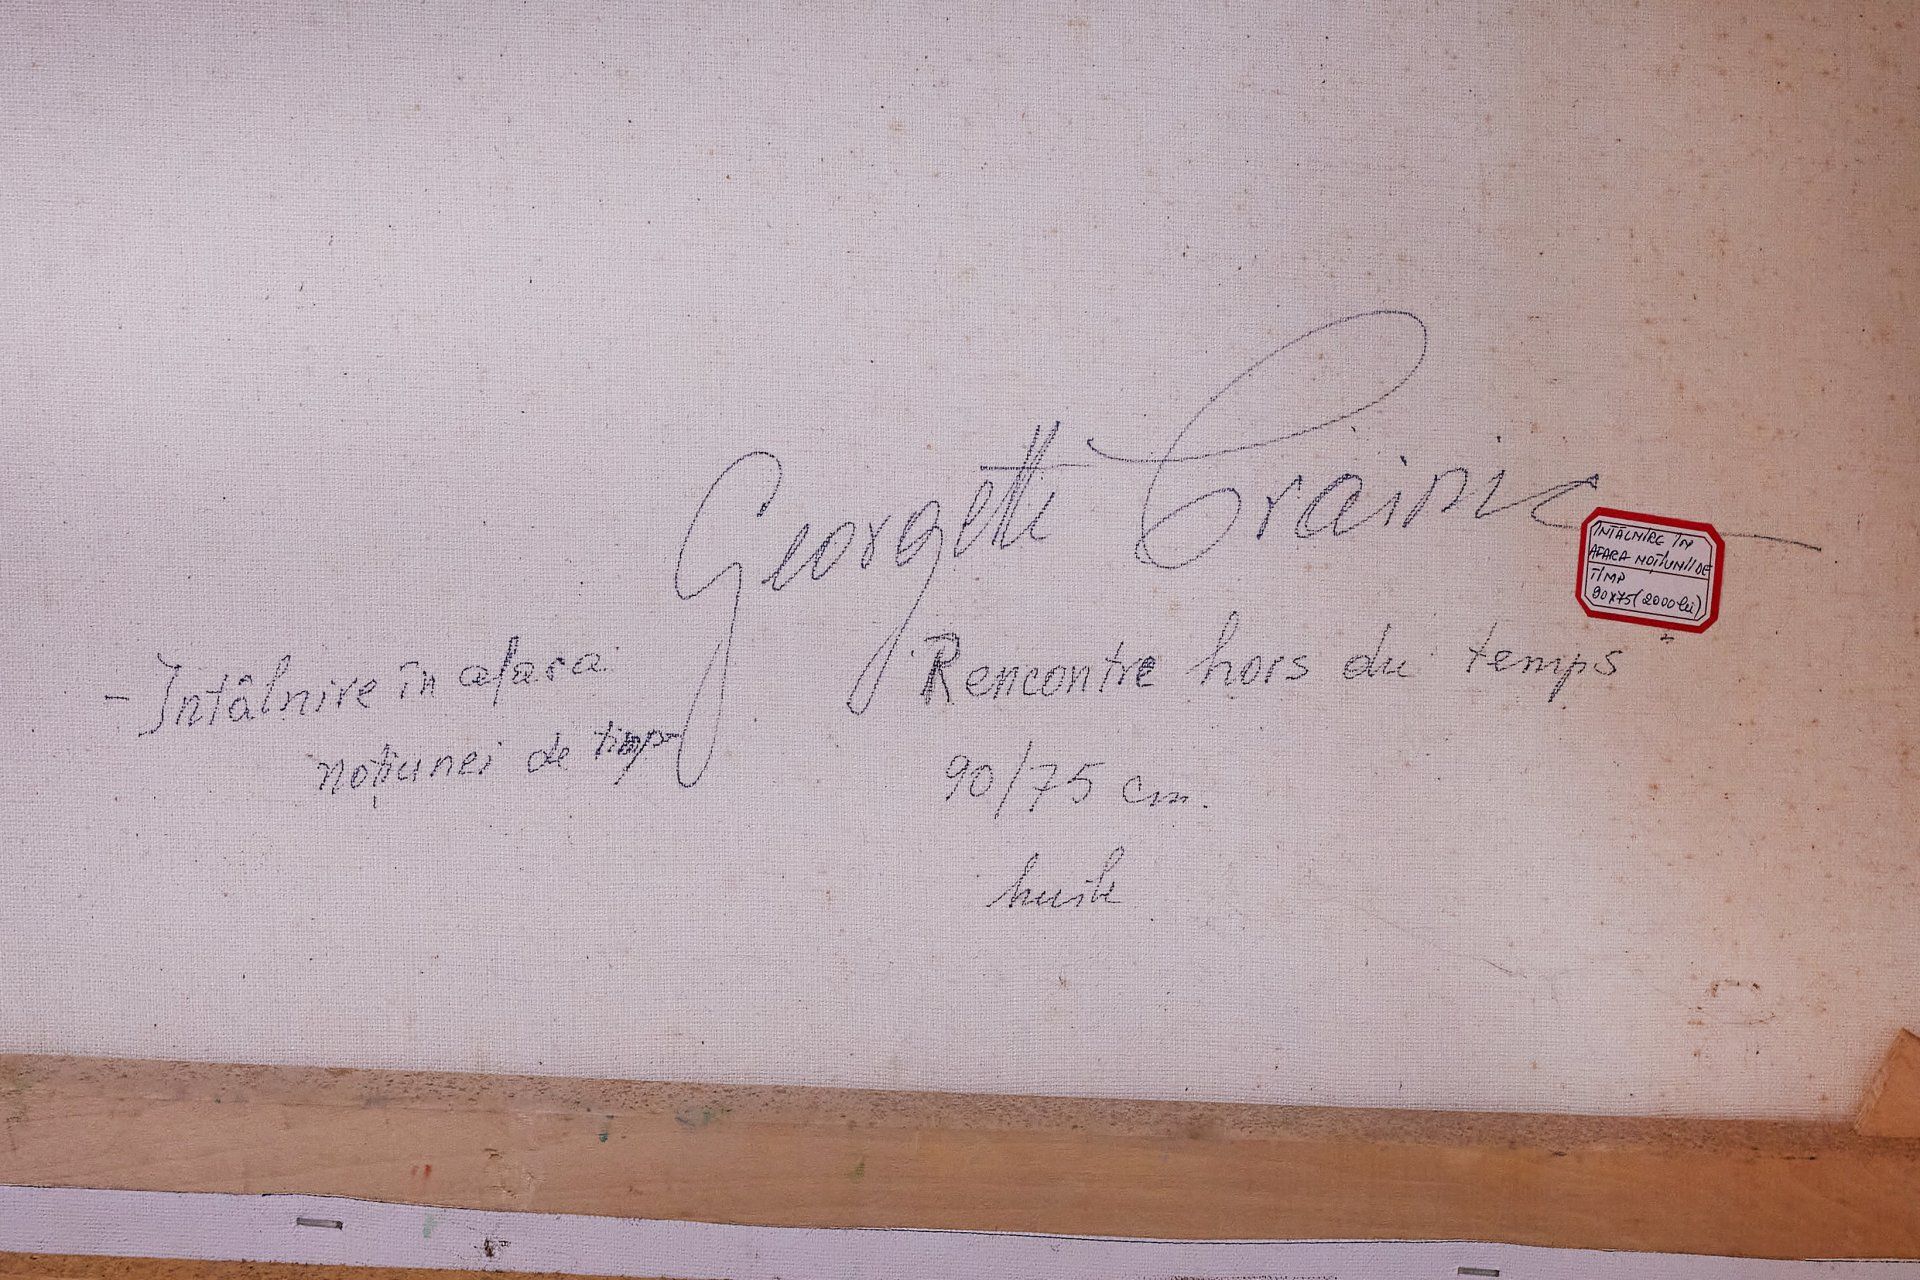 Georgeta Crainic
- Întâlnire în afara
noțiunei de timp
Rencontre hors du temps
90/75 cm.
huile
INTÂLNIRE ÎN
AFARA NOȚIUNII DE
TIMP
90x75 (2000 lei)